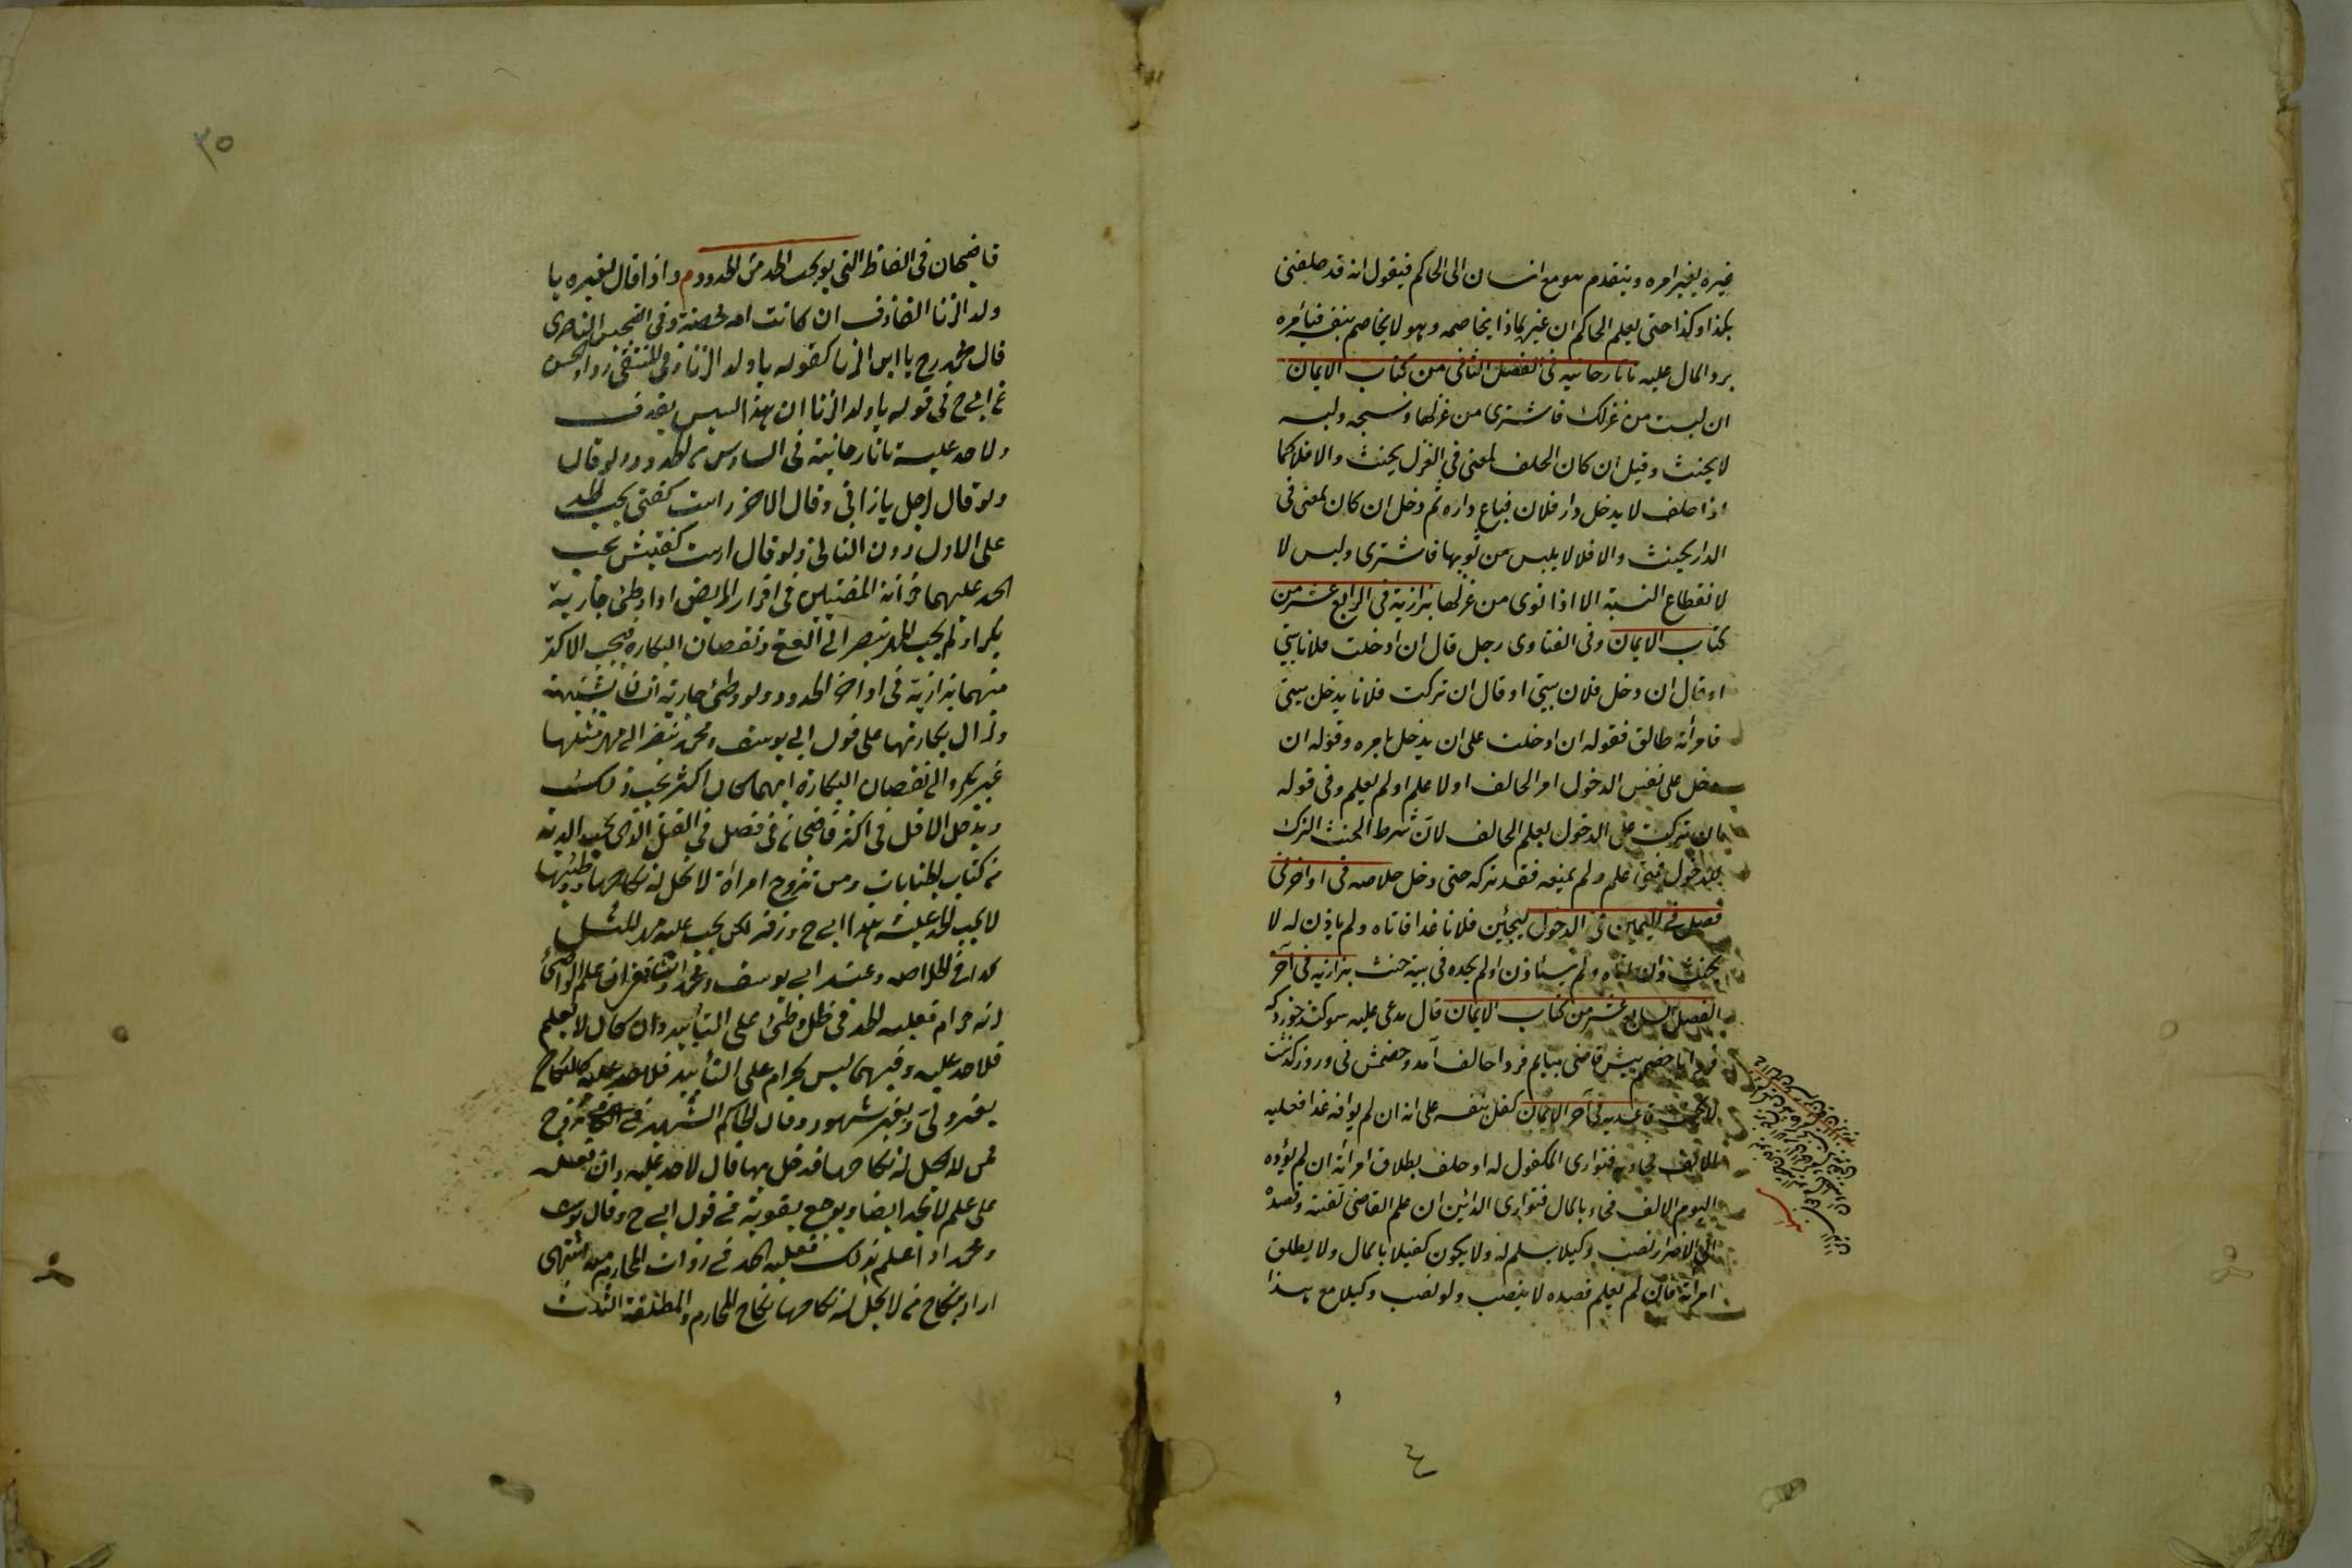 غيره بغير امره ويتقدم هو مع انسان الى الحاكم فيقول انه قد حلفنى
بكذا وكذا حتى يعلم الحاكم ان غيره بماذا يخاصمه وهو لا يخاصم بنفسه فيأمره
برد المال عليه تاتارخانيه فى الفصل الثانى من كتاب الايمان
ان لبست من غزلك فاشترى من غزلها ونسجه ولبسه
لا يحنث وقيل ان كان الحلف لمعنى فى الغزل يحنث والا فلا كما
اذا حلف لا يدخل دار فلان فباع داره ثم دخل ان كان لمعنى فى
الدار يحنث والا فلا لا يلبس من ثوبها فاشترى ولبس لا
لانقطاع النسبة الا اذا نوى من غزلها بزازية فى الرابع عشر من
كتاب الايمان وفى الفتاوى رجل قال ان ادخلت فلانا بيتى
او قال ان دخل فلان بيتى او قال ان تركت فلانا يدخل بيتى
فامرأته طالق فقوله ان ادخلت على ان يدخل بامره وقوله ان
دخل على نفس الدخول امر الحالف او لا علم او لم يعلم وفى قوله
ان تركت على الدخول بعلم الحالف لان شرط الحنث الترك
للدخول فمتى علم ولم يمنعه فقد تركه حتى دخل خلاصه فى اواخر فى
فصل فى اليمين فى الدخول ليجيئن فلانا غدا فاتاه ولم ياذن له لا
يحنث وان اتاه ولم يستأذن او لم يجده فى بيته حنث بزازيه فى آخر
الفصل السابع عشر من كتاب الايمان قال مدعى عليه سوكند خورد كه
فردا با خصم پيش قاضى بيايم فردا حالف آمد وخصمش نى وروز گذشت
لا يحنث قاعديه فى آخر الايمان كفل بنفسه على انه ان لم يوافه غدا فعليه
المال فجاء به فتوارى المكفول له او حلف بطلاق امرأته ان لم يؤده
اليوم الالف فجاء بالمال فتوارى الدائن ان علم القاضى تعنته وقصده
الى الاضرار نصب وكيلا يسلم له ولا يكون كفيلا بالمال ولا يطلق
امرأته فان لم يعلم قصده لا ينصب ولو نصب وكيلا مع هذا
٤
٣٥
قاضيخان فى الفاظ التى يوجب الحد من الحدود م واذا قال لغيره يا
ولد الزنا القاذف ان كانت امه محصنة وفى التجنيس الناصرى
قال محمد رح يا ابن الزنا كقوله يا ولد الزنا وفى المنتقى روى الحسن
عن ابى ح فى قوله يا ولد الزنا ان هذا ليس بقذف
ولا حد عليه تاتارخانية فى السادس من الحدود ولو قال
ولو قال رجل يا زانى وقال الاخر راست كفتى يجب الحد
على الاول دون الثانى ولو قال راست كفتيش يجب
الحد عليهما خزانة المفتيين فى اقرار المريض اذا وطئ جارية
بكرا ولم يجب الحد ينظر الى العقر ونقصان البكاره فيجب الاكثر
منهما بزازية فى اواخر الحدود ولو وطئ جارية انسان بشبهة
وزال بكارتها على قول ابى يوسف ومحمد ينظر الى مهر مثلها
غير بكر والى نقصان البكارة ايهما كان اكثر يجب ذلك
ويدخل الاقل فى الاكثر قاضيخان فى فصل فى القتل الذى يجب الدية
من كتاب الجنايات ومن تزوج امرأة لا يحل له نكاحها ووطئها
لا يجب الحد عليه عند ابى ح وزفر لكن يجب عليه مهر المثل
كذا فى الخلاصه وعند ابى يوسف ومحمد والشافعى ان علم الواطئ
انه حرام فعليه الحد فى ظل وطئ على التأبيد وان كان لا يعلم
فلا حد عليه وفيما ليس بحرام على التأبيد فلا حد عليه كالنكاح
بغير ولى وبغير شهود وقال الحاكم الشهيد فى الكافى تزوج
من لا يحل له نكاحها فدخل بها قال لا حد عليه وان فعله
على علم لا يحد ايضا ويوجع بعقوبة فى قول ابى ح وقال يوسف
ومحمد اذا علم بذلك فعليه الحد فى ذوات المحارم انتهى
اراد بنكاح من لا يحل له نكاحها نكاح المحارم والمطلقة الثلث